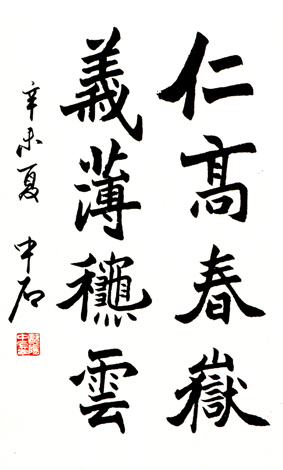 仁高春嶽
義薄龝雲
辛未夏 中石